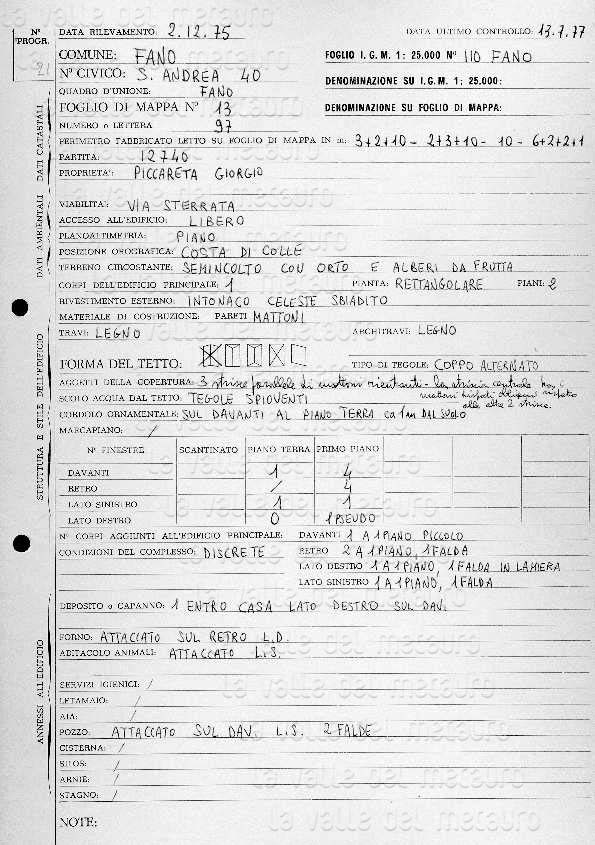 Nº PROGR.
21
DATA RILEVAMENTO: 2.12.75 DATA ULTIMO CONTROLLO: 13.7.77
COMUNE: FANO FOGLIO I.G.M. 1: 25.000 Nº 110 FANO
Nº CIVICO: S. ANDREA 40 DENOMINAZIONE SU I.G.M. 1; 25.000:
QUADRO D'UNIONE: FANO
FOGLIO DI MAPPA Nº 13 DENOMINAZIONE SU FOGLIO DI MAPPA:
NUMERO o LETTERA 97
PERIMETRO FABBRICATO LETTO SU FOGLIO DI MAPPA IN m: 3+2+10 - 2+3+10 - 10 - 6+2+2+1
PARTITA: 12740
PROPRIETA': PICCARETA GIORGIO
DATI CATASTALI
VIABILITA': VIA STERRATA
ACCESSO ALL'EDIFICIO: LIBERO
PLANOALTIMETRIA: PIANO
POSIZIONE OROGRAFICA: COSTA DI COLLE
TERRENO CIRCOSTANTE: SEMINCOLTO CON ORTO E ALBERI DA FRUTTA
DATI AMBIENTALI
CORPI DELL'EDIFICIO PRINCIPALE: 1 PIANTA: RETTANGOLARE PIANI: 2
RIVESTIMENTO ESTERNO: INTONACO CELESTE SBIADITO
MATERIALE DI COSTRUZIONE: PARETI MATTONI
TRAVI: LEGNO ARCHITRAVI: LEGNO
FORMA DEL TETTO: TIPO DI TEGOLE: COPPO ALTERNATO
AGGETTI DELLA COPERTURA: 3 strisce parallele di mattoni rientranti - La striscia centrale ha i
mattoni disposti obliqui rispetto
alle altre 2 strisce.
SCOLO ACQUA DAL TETTO: TEGOLE SPIOVENTI
CORDOLO ORNAMENTALE: SUL DAVANTI AL PIANO TERRA ca 1m DAL SUOLO
MARCAPIANO: /
STRUTTURA E STILE DELL'EDIFICIO
Nº FINESTRE SCANTINATO PIANO TERRA PRIMO PIANO
DAVANTI 1 4
RETRO / 4
LATO SINISTRO 1 1
LATO DESTRO 0 1 PSEUDO
Nº CORPI AGGIUNTI ALL'EDIFICIO PRINCIPALE: DAVANTI 1 A 1 PIANO PICCOLO
CONDIZIONI DEL COMPLESSO: DISCRETE RETRO 2 A 1 PIANO, 1 FALDA
LATO DESTRO 1 A 1 PIANO, 1 FALDA IN LAMIERA
LATO SINISTRO 1 A 1 PIANO, 1 FALDA
DEPOSITO o CAPANNO: 1 ENTRO CASA LATO DESTRO SUL DAV.
FORNO: ATTACCATO SUL RETRO L.D.
ABITACOLO ANIMALI: ATTACCATO L.S.
SERVIZI IGIENICI: /
LETAMAIO: /
AIA: /
POZZO: ATTACCATO SUL DAV. L.S. 2 FALDE
CISTERNA: /
SILOS: /
ARNIE: /
STAGNO: /
ANNESSI ALL'EDIFICIO
NOTE:
la valle del metauro